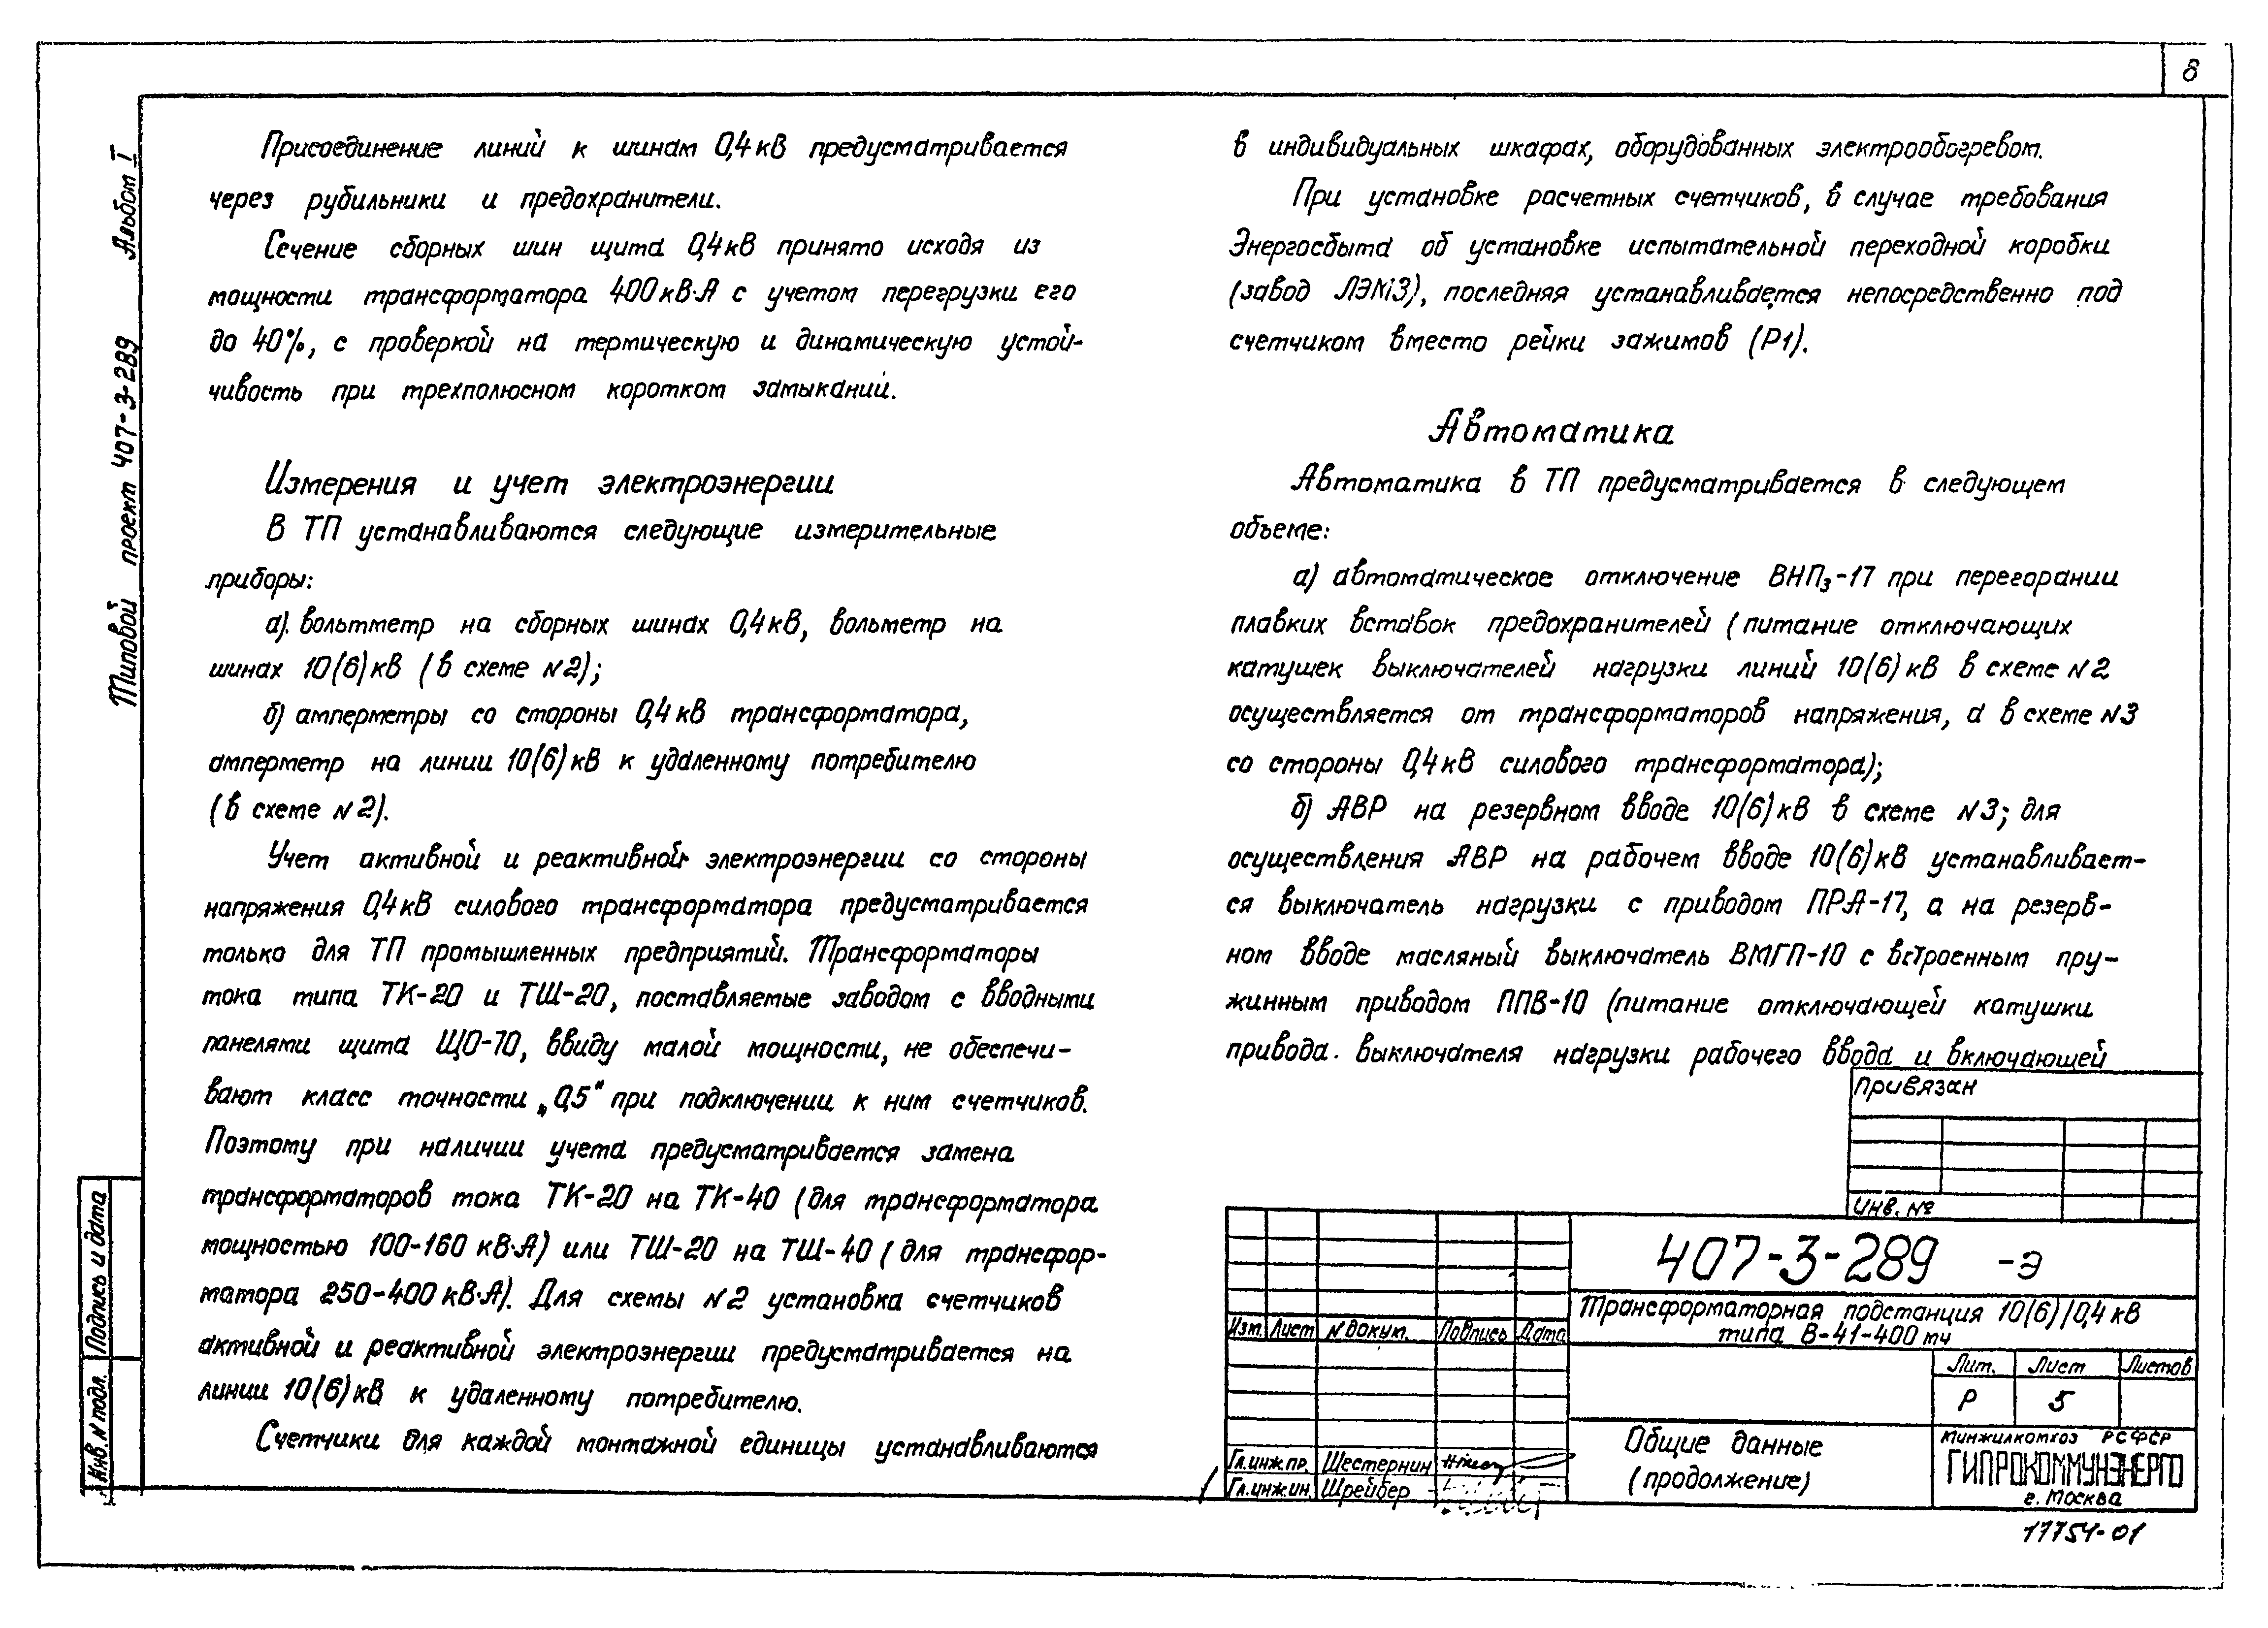 8
Типовой проект 407-3-289 Альбом I
Присоединение линий к шинам 0,4кВ предусматривается
через рубильники и предохранители.
Сечение сборных шин щита 0,4кВ принято исходя из
мощности трансформатора 400кВ·А с учетом перегрузки его
до 40%, с проверкой на термическую и динамическую устой-
чивость при трехполюсном коротком замыкании.
Измерения и учет электроэнергии
В ТП устанавливаются следующие измерительные
приборы:
а). вольтметр на сборных шинах 0,4кВ, вольметр на
шинах 10(6)кВ (в схеме N2);
б) амперметры со стороны 0,4кВ трансформатора,
амперметр на линии 10(6)кВ к удаленному потребителю
(в схеме N2).
Учет активной и реактивной электроэнергии со стороны
напряжения 0,4кВ силового трансформатора предусматривается
только для ТП промышленных предприятий. Трансформаторы
тока типа ТК-20 и ТШ-20, поставляемые заводом с вводными
панелями щита ЩО-70, ввиду малой мощности, не обеспечи-
вают класс точности „0,5" при подключении к ним счетчиков.
Поэтому при наличии учета предусматривается замена
трансформаторов тока ТК-20 на ТК-40 (для трансформатора
мощностью 100-160 кВ·А) или ТШ-20 на ТШ-40 (для трансфор-
матора 250-400кВ·А). Для схемы N2 установка счетчиков
активной и реактивной электроэнергии предусматривается на
линии 10(6)кВ к удаленному потребителю.
Счетчики для каждой монтажной единицы устанавливаются
в индивидуальных шкафах, оборудованных электрообогревом.
При установке расчетных счетчиков, в случае требования
Энергосбыта об установке испытательной переходной коробки
(завод ЛЭМЗ), последняя устанавливается непосредственно под
счетчиком вместо рейки зажимов (Р1).
Автоматика
Автоматика в ТП предусматривается в следующем
объеме:
а) автоматическое отключение ВНПз-17 при перегорании
плавких вставок предохранителей (питание отключающих
катушек выключателей нагрузки линий 10(6)кВ в схеме N2
осуществляется от трансформаторов напряжения, а в схеме N3
со стороны 0,4кВ силового трансформатора);
б) АВР на резервном вводе 10(6)кВ в схеме N3; для
осуществления АВР на рабочем вводе 10(6)кВ устанавливает-
ся выключатель нагрузки с приводом ПРА-17, а на резерв-
ном вводе масляный выключатель ВМГП-10 с встроенным пру-
жинным приводом ППВ-10 (питание отключающей катушки
привода. выключателя нагрузки рабочего ввода и включающей
Привязан
Инв. №
407-3-289 -Э
Трансформаторная подстанция 10(6)/0,4кВ
типа В-41-400тч
Изм. Лист N докум. Подпись Дата
Лит. Лист Листов
Р 5
Общие данные
(продолжение)
Минжилкомхоз РСФСР
ГИПРОКОММУНЭНЕРГО
г. Москва
Гл.инж.пр. Шестернин
Гл.инж.ин. Шрейбер
17754-01
Подпись и дата
Инв. N подл.